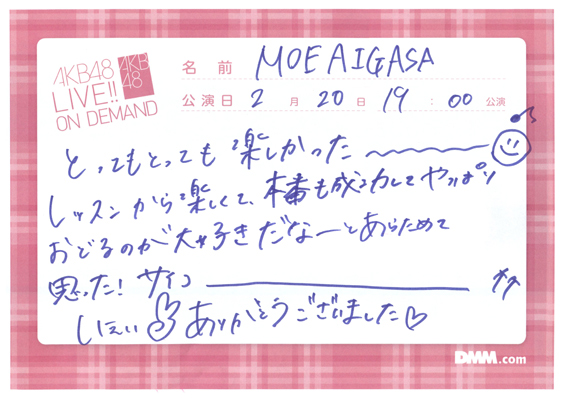 AKB48
LIVE!!
ON DEMAND
AKB
48
名前 MOE AIGASA
公演日 2月20日 19:00公演
とってもとっても楽しかった〜
レッスンから楽しくて、本番も成功してやっぱり
おどるのが大好きだなーとあらためて
思った! サイコー
しぇい ありがとうございました♡
DMM.com